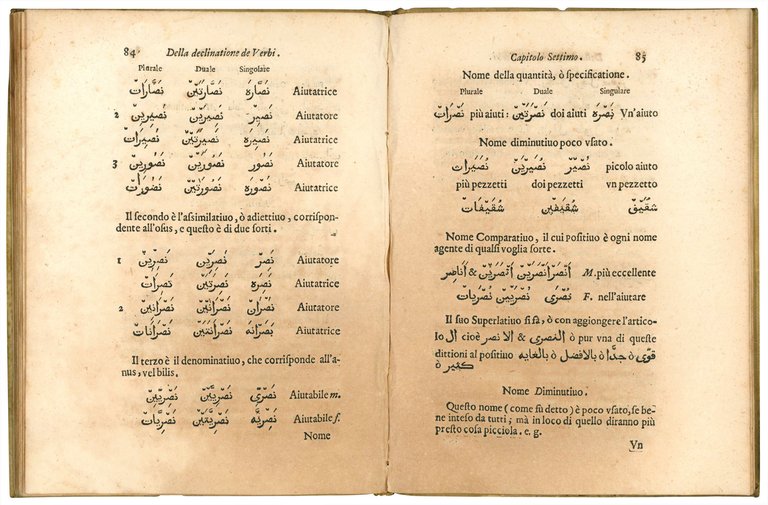 84 Della declinatione de Verbi.
Plurale Duale Singolare
نَصَّارَات نَصَّارَتَيْن نَصَّارَة Aiutatrice
2 نَصِيرِين نَصِيرَين نَصِير Aiutatore
نَصِيرَات نَصِيرَتَين نَصِيرَة Aiutatrice
3 نَصُورِين نَصُورَين نَصُور Aiutatore
نَصُورَات نَصُورَتَين نَصُورَة Aiutatrice
Il secondo è l'assimilatiuo, ò adiettiuo, corrispon-
dente all'osus, e questo è di due sorti.
1 نَصِرِين نَصِرَين نَصِر Aiutatore
نَصِرَات نَصِرَتَين نَصِرَة Aiutatrice
2 نَصْرَانِين نَصْرَانَين نَصْرَان Aiutatore
نَصْرَانَات نَصْرَانَتَين نَصْرَانَة Aiutatrice
Il terzo è il denominatiuo, che corrisponde all'a-
nus, vel bilis.
نَصْرِيِّين نَصْرِيَّين نَصْرِي Aiutabile m.
نَصْرِيَّات نَصْرِيَّتَين نَصْرِيَّة Aiutabile f.
Nome
Capitolo Settimo. 85
Nome della quantità, ò specificatione.
Plurale Duale Singulare
نَصْرَات più aiuti: نَصْرَتَين doi aiuti نَصْرَة Vn'aiuto
Nome diminutiuo poco vsato.
نُصَيرَات نُصَيرَين نُصَير picolo aiuto
più pezzetti doi pezzetti vn pezzetto
شُقَيفَات شُقَيفَين شُقَيق
Nome Comparatiuo, il cui positiuo è ogni nome
agente di qualsi voglia sorte.
أَنْصَر أَنْصَرَين أَنْصَرِين & أَنَاصِر M. più eccellente
نُصْرَى نُصْرَيَين نُصْرَيَات F. nell'aiutare
Il suo Superlatiuo si fà, ò con aggiongere l'artico-
lo ال cioè النصرى & الانصر ò pur vna di queste
dittioni al positiuo بالافضل ò بالغايه ò جدًّا ò قوى
ò كثير
Nome Diminutiuo.
Questo nome (come sù detto) è poco vsato, se be-
ne inteso da tutti; mà in loco di quello diranno più
presto cosa picciola. e. g.
Vn